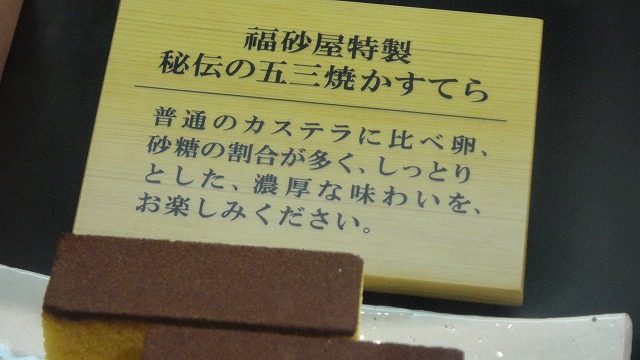 福砂屋特製
秘伝の五三焼かすてら
普通のカステラに比べ卵、
砂糖の割合が多く、しっとり
とした、濃厚な味わいを、
お楽しみください。